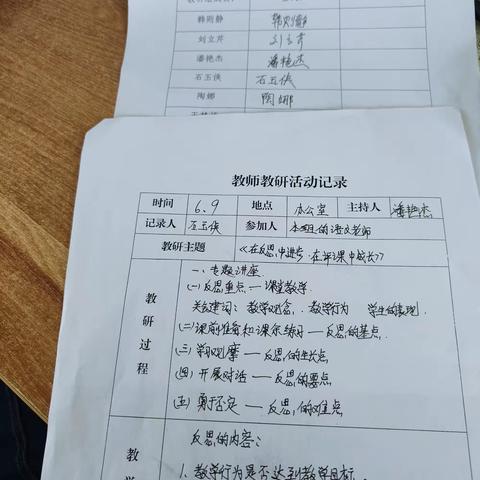 韩则静 韩则静
刘立芹 刘立芹
潘艳杰 潘艳杰
石玉侠 石玉侠
陶娜 陶娜
教师教研活动记录
时间 6.9 地点 办公室 主持人 潘艳杰
记录人 石玉侠 参加人 本组的语文老师
教研主题 《在反思中进步 在评课中成长》
教研过程
一、专题讲座
(一)反思重点—课堂教学
关键词:教学观念、教学行为 学生的表现
(二)课前准备和课尔练习—反思的基点
(三)学习观摩—反思的生长点
(四)开展对话—反思的要点
(五)勇于否定—反思的难点
反思的内容:
1、教学行为是否达到教学目标
教